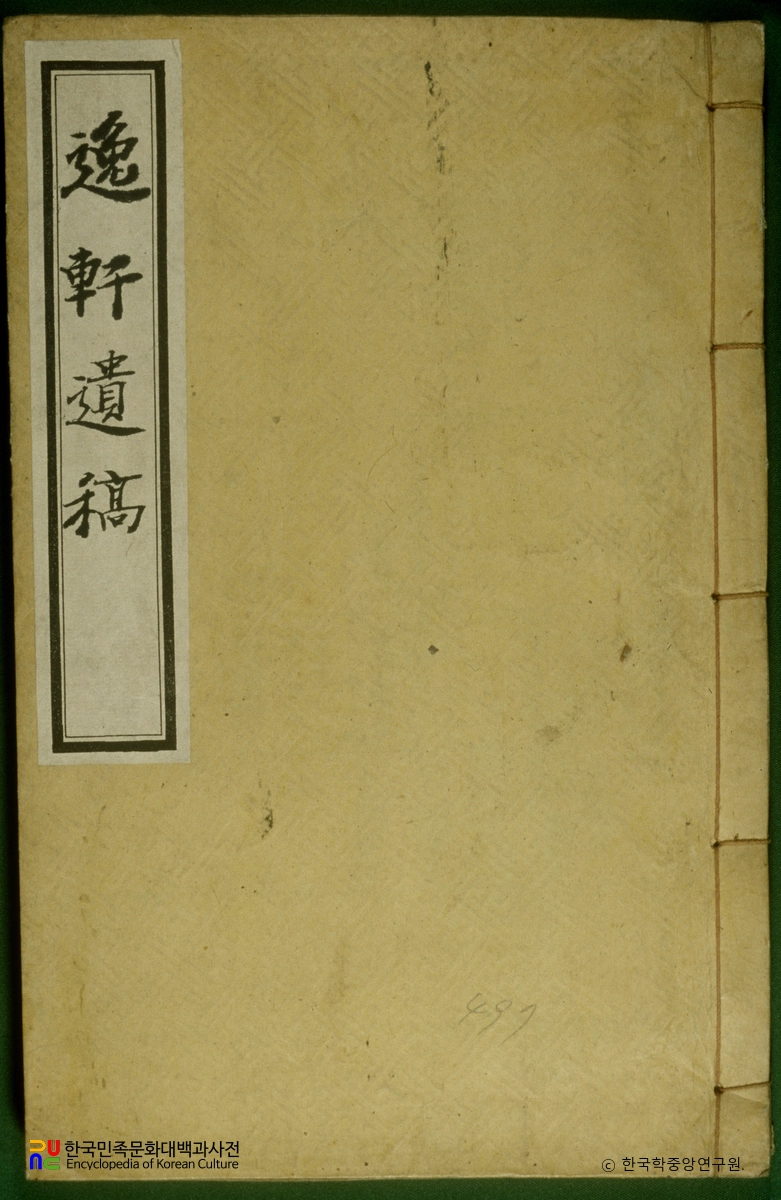 逸軒遺稿
497
한국민족문화대백과사전
Encyclopedia of Korean Culture
© 한국학중앙연구원.